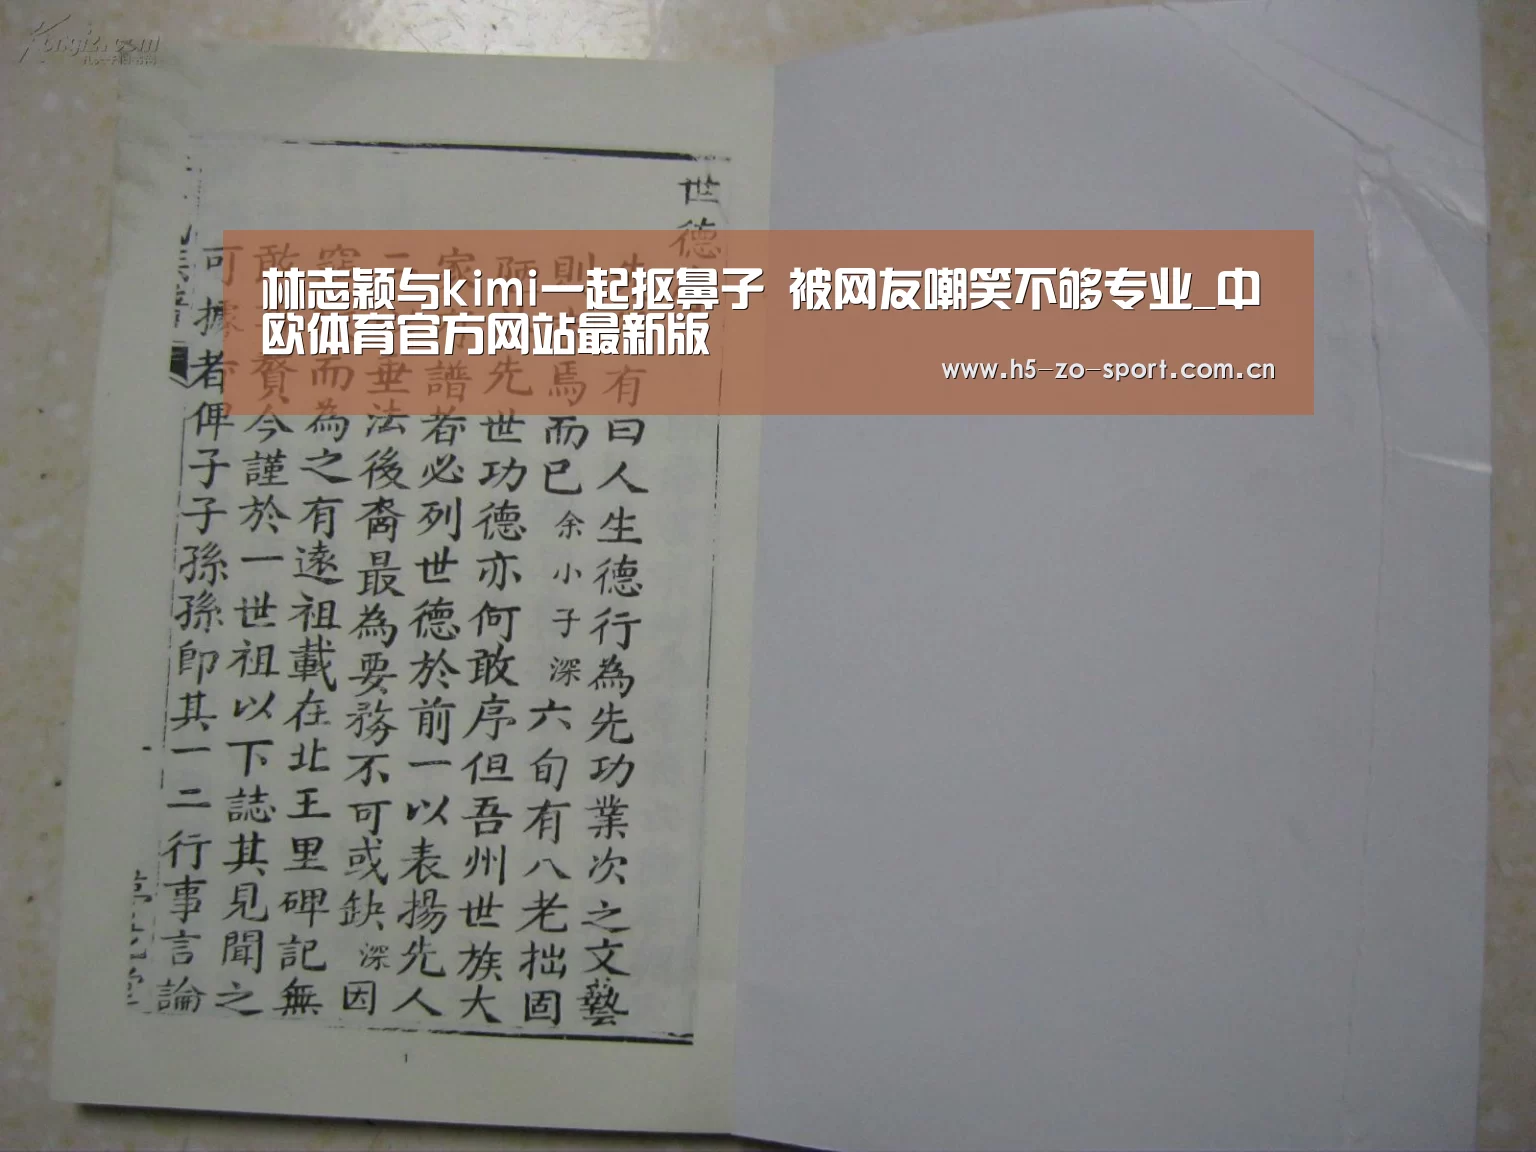 林志颖与kimi一起抠鼻子 被网友嘲笑不够专业_中
欧体育官方网站最新版
www.h5-zo-sport.com.cn
世德
有曰人生德行為先功業次之文藝
則焉而已余小子深六旬有八老拙固
陋先世功德亦何敢序但吾州世族大
家譜者必列世德於前一以表揚先人
二垂法後裔最為要務不可或缺深因
而為之有遠祖載在北王里碑記無
敢贅今謹於一世祖以下誌其見聞之
可據者俾子子孫孫即其一二行事言論
1